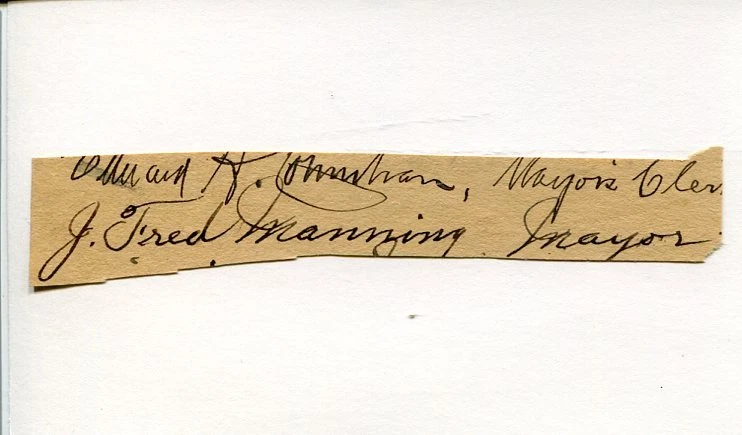 Edward H. Mayor's Cler
J. Fred Manning Mayor